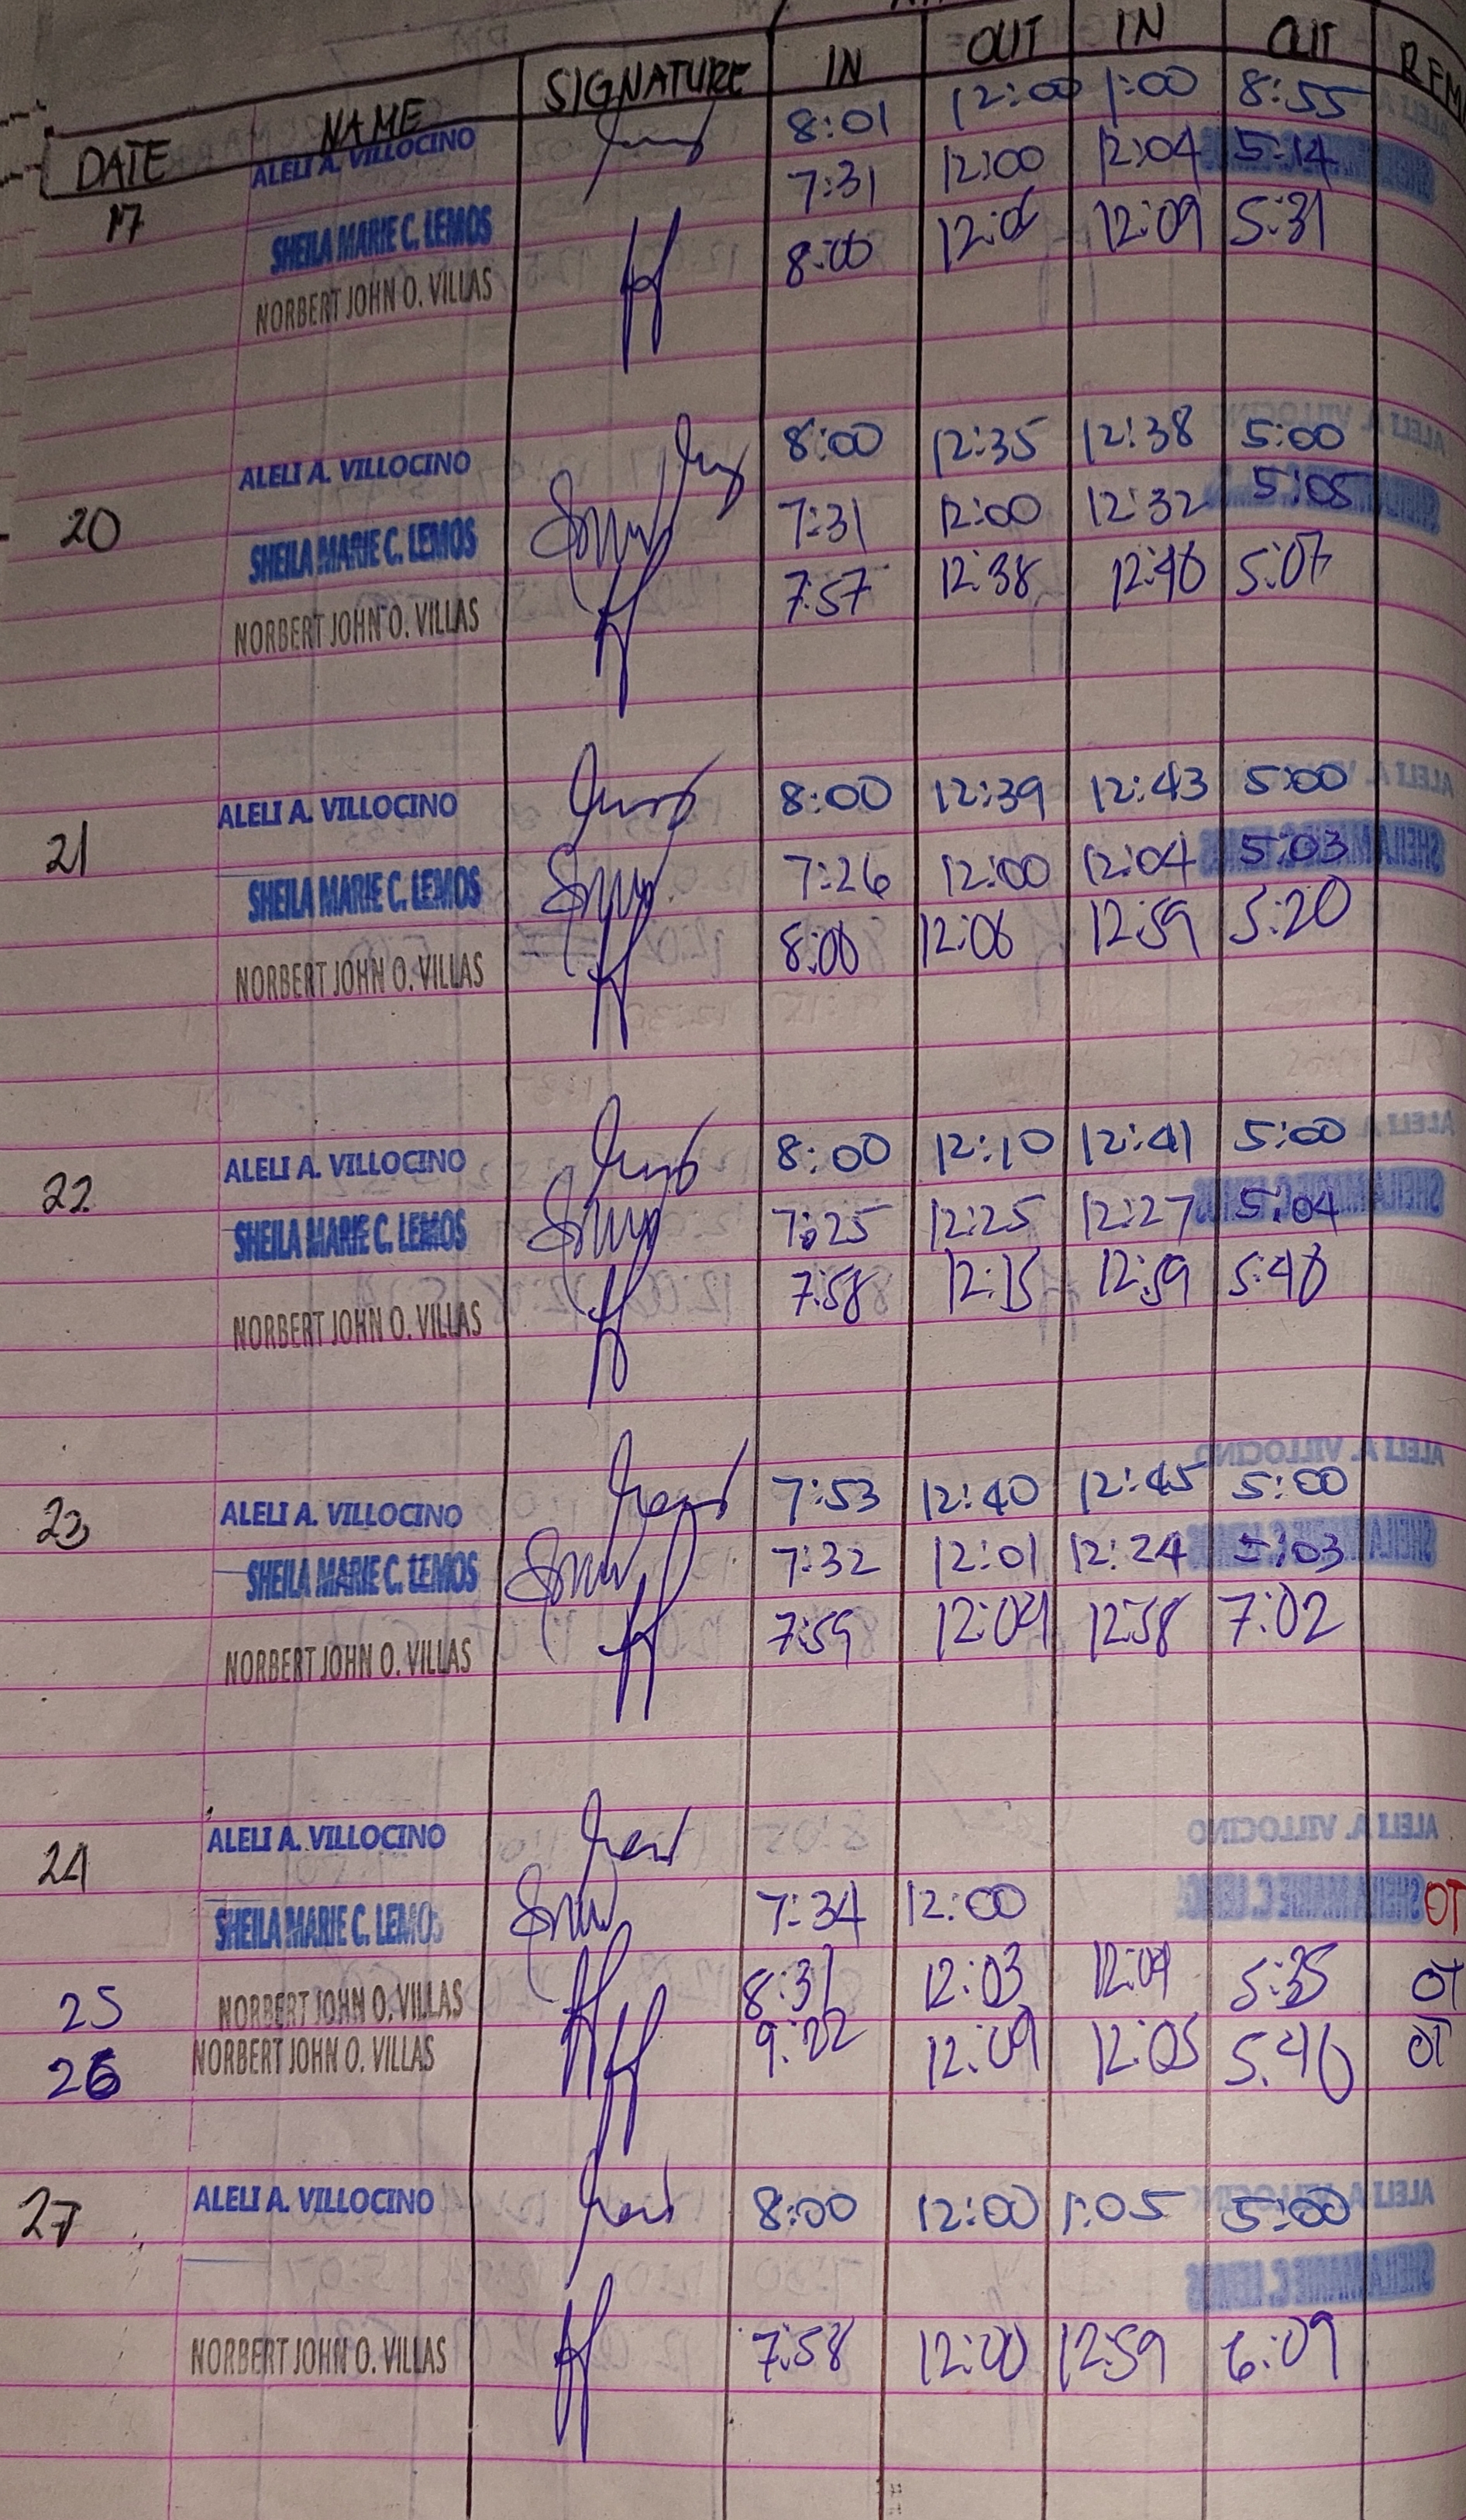 DATE NAME SIGNATURE IN OUT IN OUT REM
17 ALELI A. VILLOCINO 8:01 12:00 1:00 8:55
SHEILA MARIE C. LEMOS 7:31 12:00 12:04 5:14
NORBERT JOHN O. VILLAS 8:00 12:06 12:09 5:31
ALELI A. VILLOCINO 8:00 12:35 12:38 5:00
20 SHEILA MARIE C. LEMOS 7:31 12:00 12:32 5:05
NORBERT JOHN O. VILLAS 7:57 12:38 12:40 5:07
21 ALELI A. VILLOCINO 8:00 12:39 12:43 5:00
SHEILA MARIE C. LEMOS 7:26 12:00 12:04 5:03
NORBERT JOHN O. VILLAS 8:00 12:06 12:59 5:20
22 ALELI A. VILLOCINO 8:00 12:10 12:41 5:00
SHEILA MARIE C. LEMOS 7:25 12:25 12:27 5:04
NORBERT JOHN O. VILLAS 7:58 12:15 12:59 5:40
23 ALELI A. VILLOCINO 7:53 12:40 12:45 5:00
SHEILA MARIE C. LEMOS 7:32 12:01 12:24 5:03
NORBERT JOHN O. VILLAS 7:59 12:04 12:58 7:02
24 ALELI A. VILLOCINO
SHEILA MARIE C. LEMOS 7:34 12:00 OT
25 NORBERT JOHN O. VILLAS 8:31 12:03 12:09 5:35 OT
26 NORBERT JOHN O. VILLAS 9:22 12:09 12:05 5:40 OT
27 ALELI A. VILLOCINO 8:00 12:00 1:05 5:00
NORBERT JOHN O. VILLAS 7:58 12:00 12:59 6:09